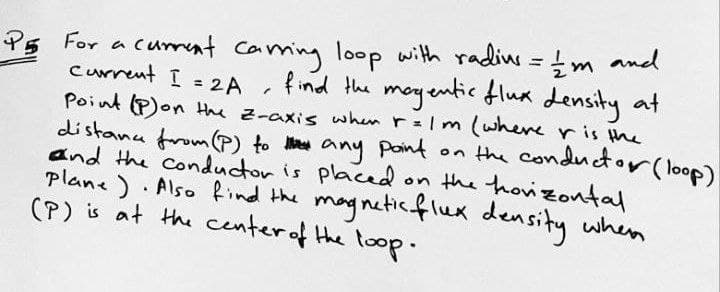 P5 For a current carring loop with radius = 1/2 m and
current I = 2A, find the magentic flux density at
Point (P) on the z-axis when r = 1 m (where r is the
distance from (P) to any point on the conductor (loop)
and the conductor is placed on the horizontal
plane). Also find the magnetic flux density when
(P) is at the center of the loop.